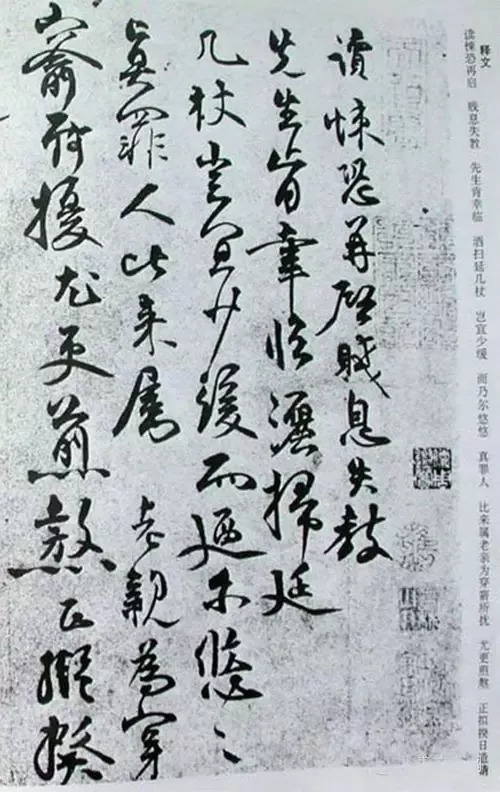 释文
读悚恐再启 贱息失教 先生肯幸临 洒扫延几杖 岂宜少缓 而乃尔悠悠 真罪人 比来属老亲为穿窬所扰 尤更煎熬 正拟揆日造请
讀悚恐再啓賤息失教
先生肯幸临灑掃延
几杖豈宜少緩而迺尔悠〻
真罪人比来属 老親為穿
窬所擾尤更煎熬正擬揆